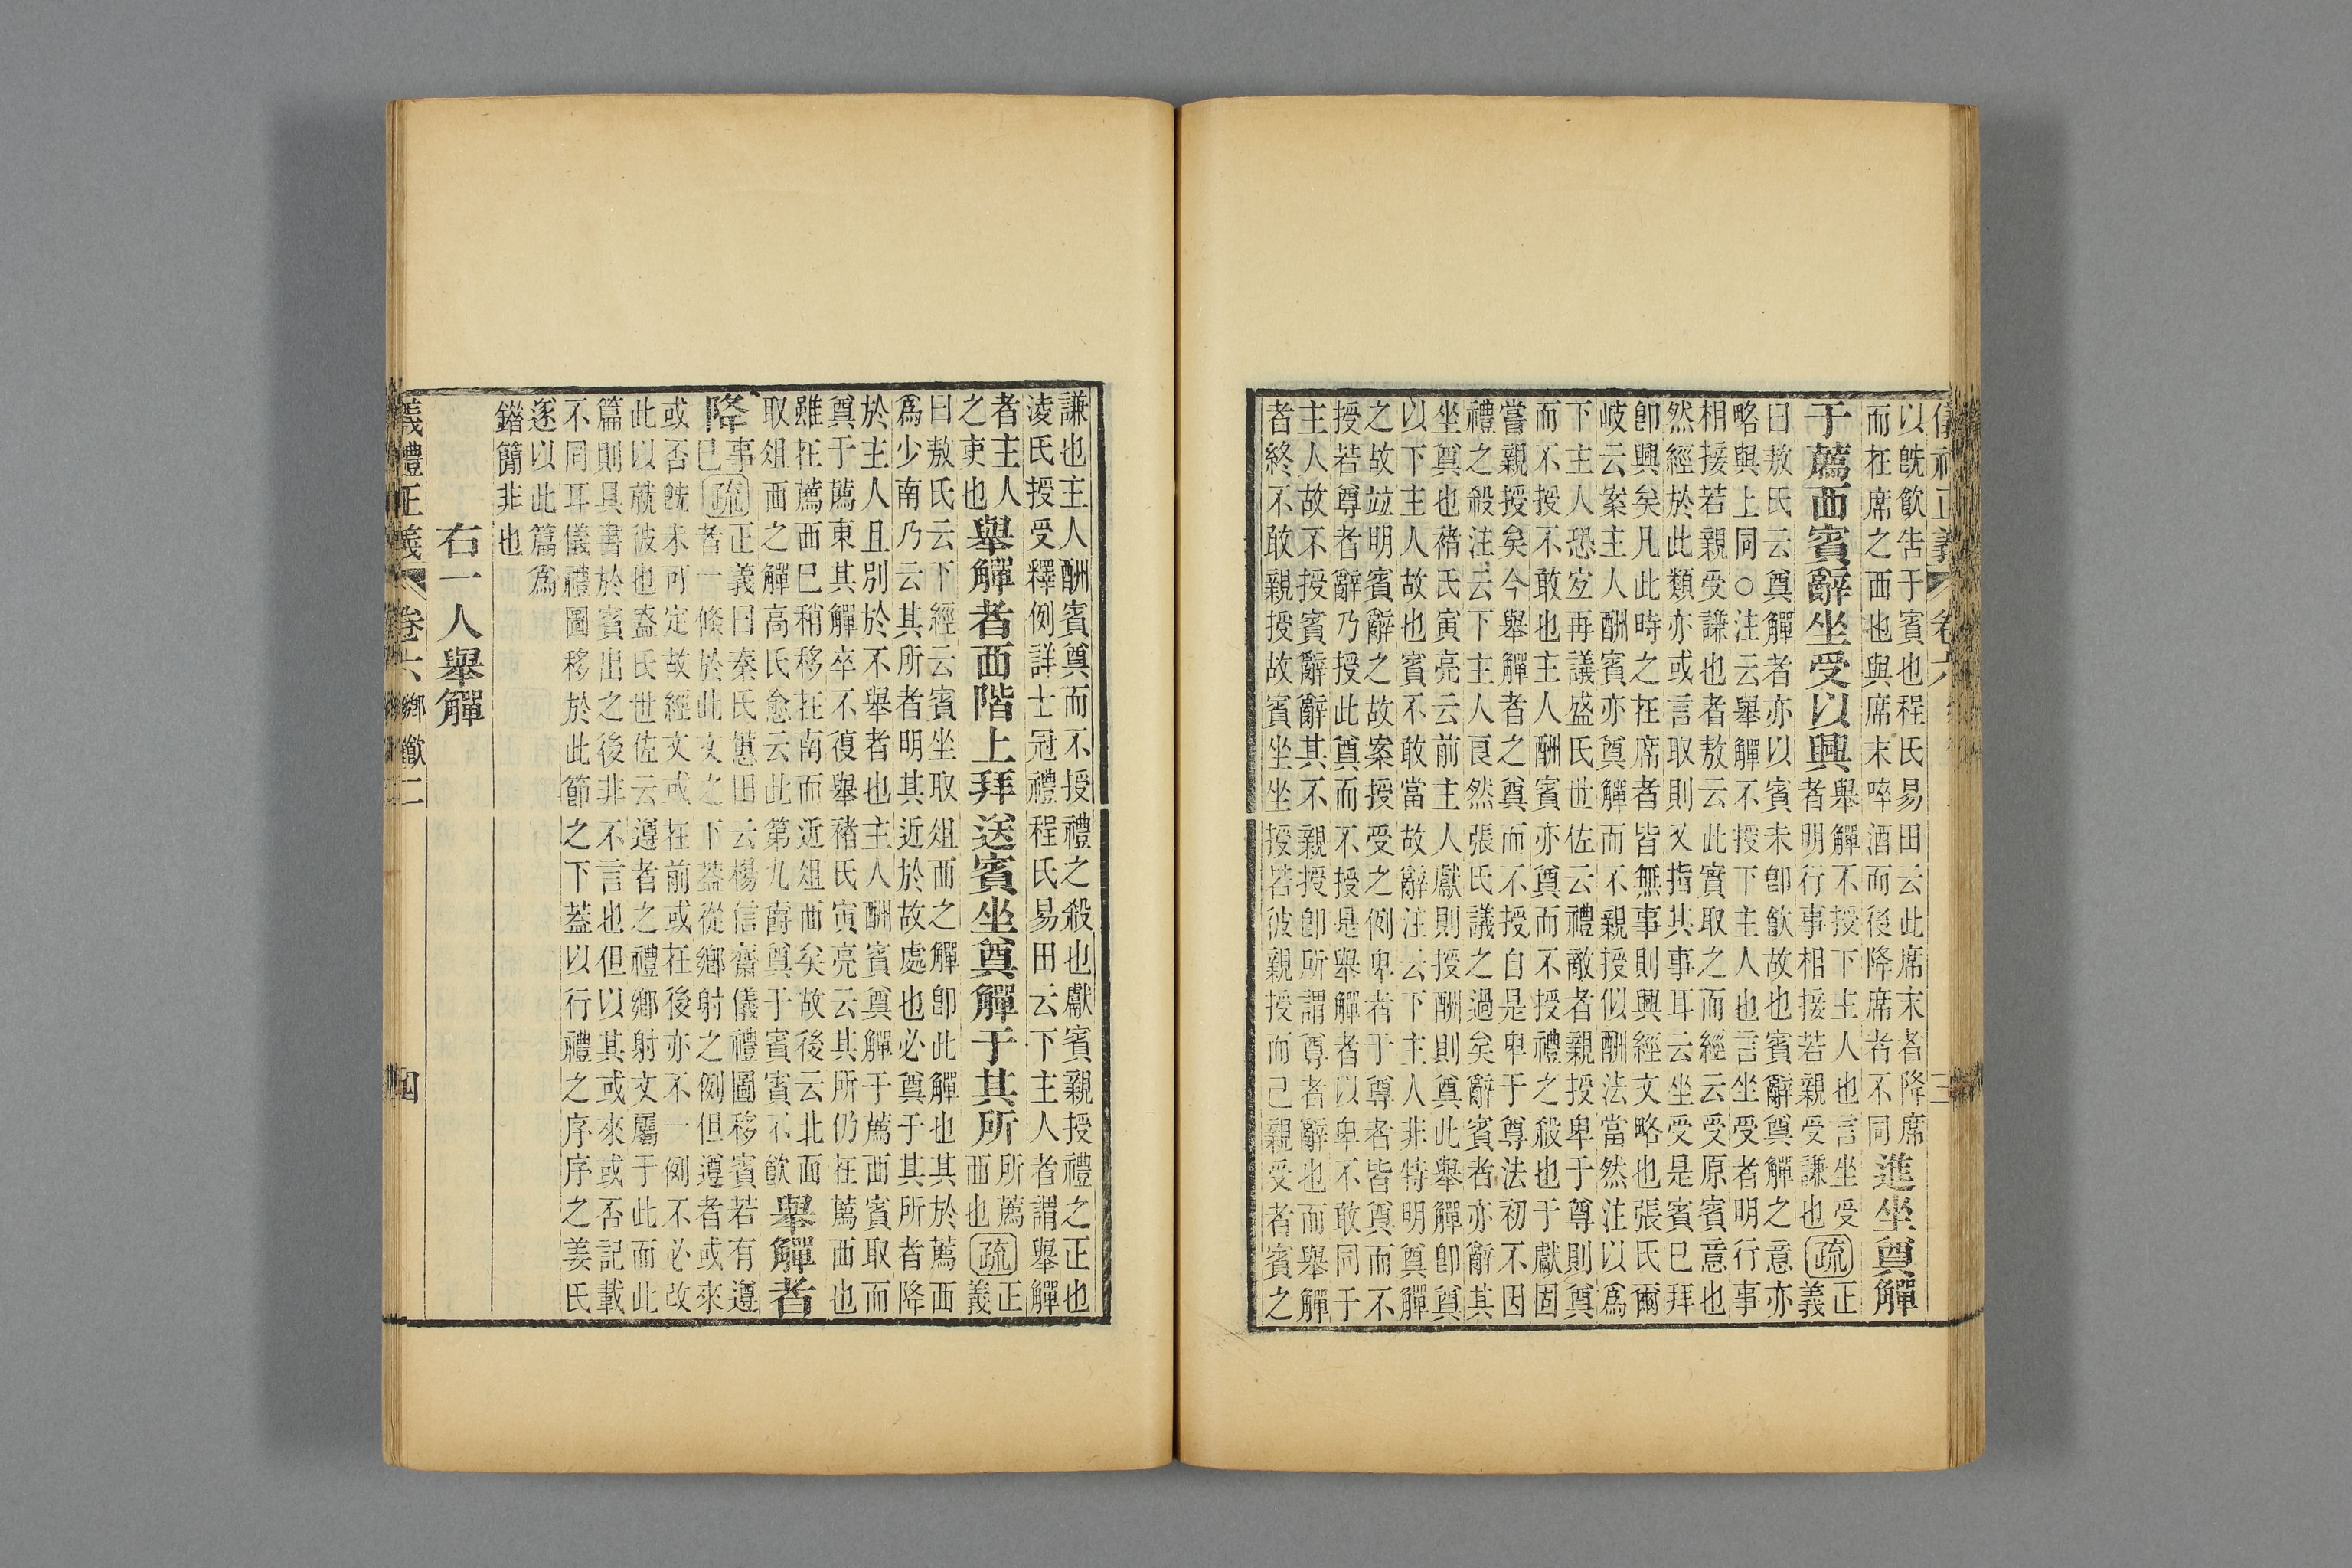 儀禮正義 卷六 三
以旣飮告于賓也程氏易田云此席末者降席
而在席之西也與席末啐酒而後降席者不同
進坐奠觶
于薦西賓辭坐受以興
舉觶不授下主人也言坐受
者明行事相接若親受謙也
疏 正義
曰敖氏云奠觶者亦以賓未卽飮故也賓辭奠觶之意亦
略與上同○注云舉觶不授下主人也言坐受者明行事
相接若親受謙也者敖云此實取之而經云受原賓意也
然經於此類亦或言取則又指其事耳云坐受是賓已拜
卽興矣凡此時之在席者皆無事則興經文略也張氏爾
岐云案主人酬賓亦奠觶而不親授似酬法當然注以爲
下主人恐再議盛氏世佐云禮敵者親授卑于尊則奠
而不授不敢也主人酬賓亦奠而不授禮之殺也于獻固
嘗親授矣今舉觶者之奠而不授自是卑于尊法初不因
禮之殺注云下主人良然張氏議之過矣辭賓者亦辭其
坐奠也褚氏寅亮云前主人獻則授酬則奠此舉觶卽奠
以下主人故也賓不敢當故辭注云下主人非特明奠觶
之故竝明賓辭之故案授受之例卑者于尊者皆奠而不
授若尊者辭乃授此奠而不授是舉觶者以卑不敢同于
主人故不授賓辭辭其不親授卽所謂尊者辭也而舉觶
者終不敢親授故賓坐坐授若彼親授而己親受者賓之
謙也主人酬賓奠而不授禮之殺也獻賓親授禮之正也
凌氏授受釋例詳士冠禮程氏易田云下主人者謂舉觶
者主人
之吏也
舉觶者西階上拜送賓坐奠觶于其所
所薦
西也
疏 正義
曰敖氏云下經云賓坐取俎西之觶卽此觶也其於薦西
爲少南乃云其所者明其近於故處也必奠于其所者降
於主人且別於不舉者也主人酬賓奠觶于薦西賓取而
奠于薦東其觶卒不復舉褚氏寅亮云其所仍在薦西也
雖在薦西已稍移在南而近俎西矣故後云北面
取俎西之觶高氏愈云此第九爵奠于賓賓不飮
舉觶者
降
事
已
疏
正義曰秦氏蕙田云楊信齋儀禮圖移賓若有遵
者一條於此文之下蓋從鄉射之例但遵者或來
或否旣未可定故經文或在前或在後亦不一例不必改
此以就彼也盛氏世佐云遵者之禮鄉射文屬于此而此
篇則具書於賓出之後非不言也但以其或來或否記載
不同耳儀禮圖移於此節之下蓋以行禮之序序之姜氏
逐以此篇爲
錯簡非也
右一人舉觶
儀禮正義 卷六 鄉飮二 四